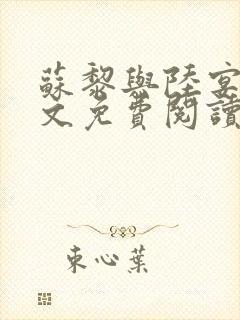 蘇黎與陸宴
文免費閱讀
束心葉